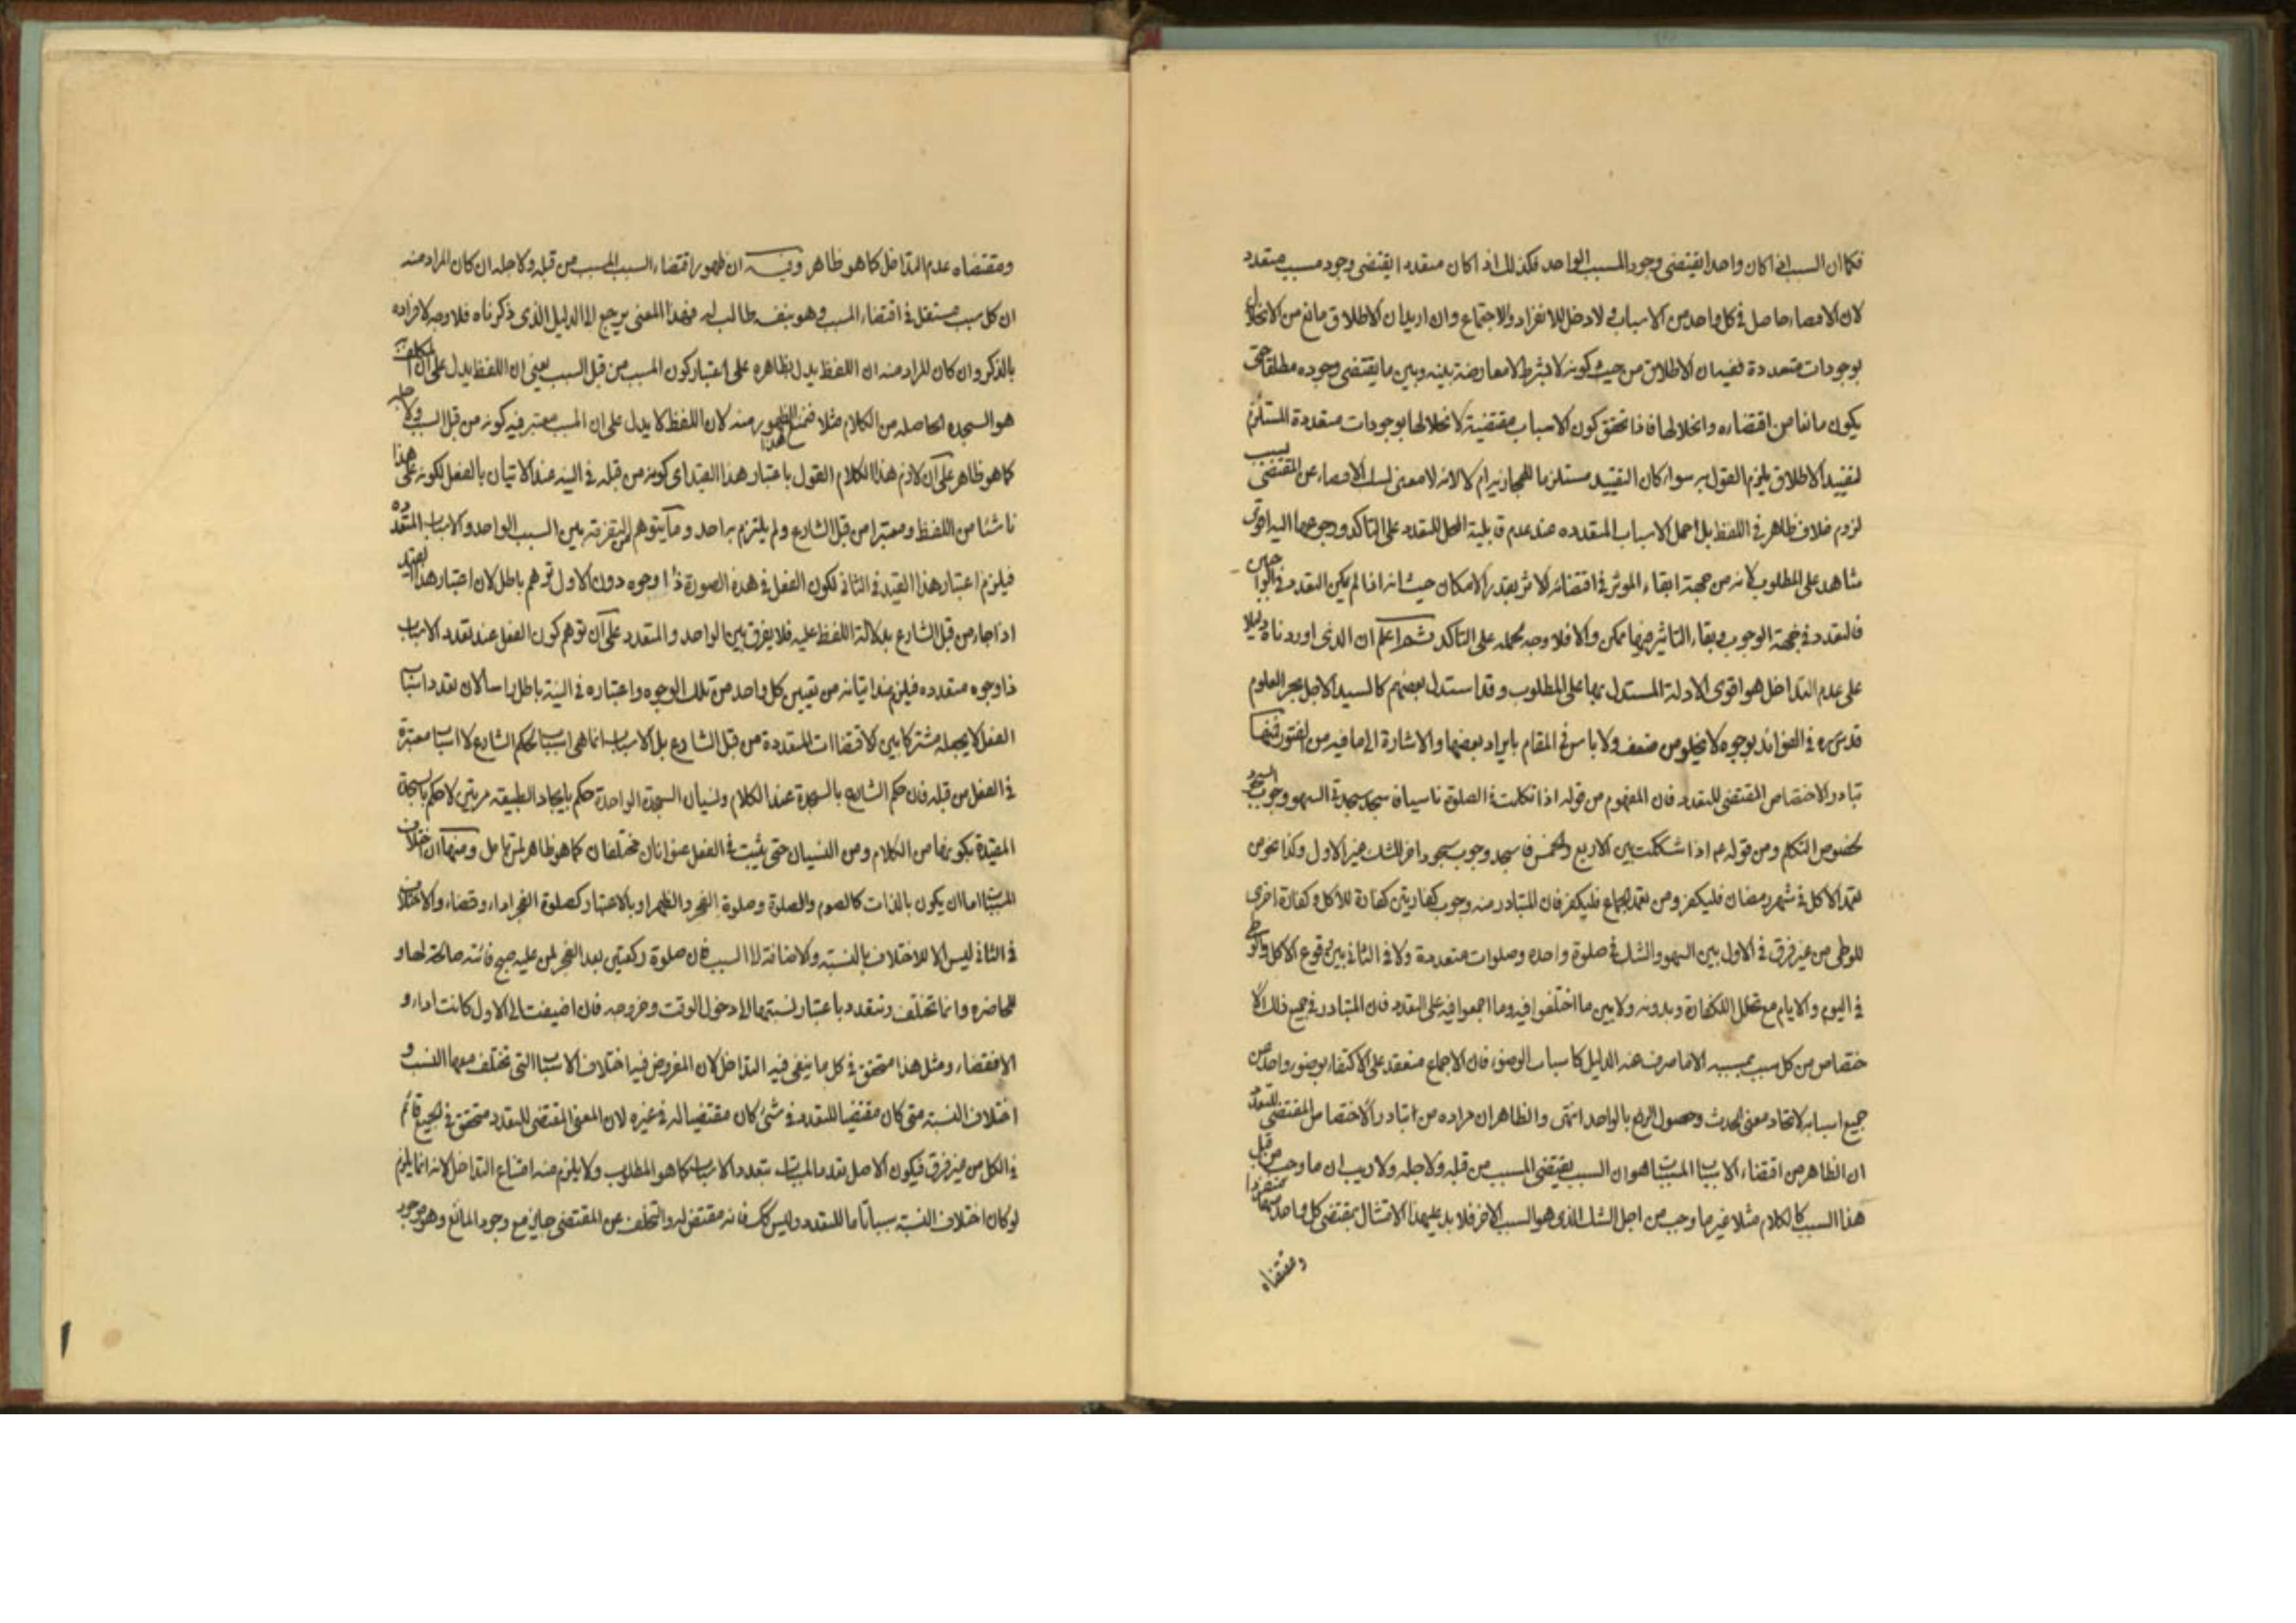 فكما ان السبب اذا كان واحدا يقتضى وجود المسبب الواحد فكذلك اذا كان متعددا يقتضى وجود مسبب متعدد
لان الاقتضاء حاصل فى كل واحد من الاسباب ولا دخل للانفراد والاجتماع وان اريد ان الاطلاق مانع من الانحلال
بوجودات متعددة ففيه ان الاطلاق من حيث كونه لا بشرط لا معارضة بينه وبين ما يقتضى وجوده مطلقا حتى
يكون مانعا من اقتضاءه وانحلالها فاذا تحقق كون الاسباب مقتضية لانحلالها بوجودات متعددة المستلزم
لتقييد الاطلاق يلزم القول به سواء كان التقييد مستلزما للمجاز ام لا لانه لا معنى لسلب الاقتضاء عن المقتضى بسبب
لزوم خلاف ظاهر فى اللفظ بل حمل الاسباب المتعدده عند عدم قابلية المحل للتعدد على التاكد ورجوعها اليه اقوى
شاهد على المطلوب لانه من جهة ابقاء المؤثر فى اقتضائه الاثر بقدر الامكان حيث انه اذا لم يكن التعدد فى الواجبين
فالتعدد فى جهة الوجوب وبقاء التاثير فيها ممكن والا فلا وجه لحمله على التاكد ثم اعلم ان الذى اوردناه دليلا
على عدم التداخل هو اقوى الادلة المستدل بها على المطلوب وقد استدل بعضهم كالسيد الاجل بحر العلوم
قدس سره فى الفوائد بوجوه لا يخلو من ضعف ولا باس فى المقام بايراد بعضها والاشارة الى ما فيه من الفتور فمنها
تبادر الاختصاص المقتضى للتعدد فان المفهوم من قوله اذا تكلمت فى الصلوة ناسيا فاسجد سجدتى السهو وجوب السجود
لخصوص التكلم ومن قوله عم اذا شككت بين الاربع والخمس فاسجد وجوب سجود اخر للشك غير الاول وكذا نحو من
تعمد الاكل فى شهر رمضان فليكفر ومن تعمد الجماع فليكفر فان المتبادر منه وجوب كفارتين كفارة للاكل وكفارة اخرى
للوطى من غير فرق فى الاول بين السهو والشك فى صلوة واحده وصلوات متعددة ولا فى الثانى بين وقوع الاكل والوطى
فى اليوم والايام مع تخلل الكفارة وبدونه ولا بين ما اختلفوا فيه وما اجمعوا فيه على التعدد فان المتبادر فى جميع ذلك الا
ختصاص من كل سبب بمسببه الا ما صرف عنه الدليل كاسباب الوضوء فان الاجماع منعقد على الاكتفاء بوضوء واحد من
جميع اسبابه لاتحاد معنى الحدث وحصول الرفع بالواحد انتهى والظاهر ان مراده من تبادر الاختصاص المقتضى للتعدد
ان الظاهر من اقتضاء الاسباب المسببات هو ان السبب يقتضى المسبب من قبله ولاجله ولا ريب ان ما وجب من قبل
هذا السبب كالكلام مثلا غير ما وجب من اجل الشك الذى هو السبب الاخر فلا بد عليهذا الامتثال بمقتضى كل واحد منهما منفردا
ومقتضاه
ومقتضاه عدم التداخل كما هو ظاهر وفيه ان ظهور اقتضاء السبب المسبب من قبله ولاجله ان كان المراد منه
ان كل سبب مستقل فى اقتضاء المسبب وهو بنفسه طالب له فهذا المعنى يرجع الى الدليل الذى ذكرناه فلا وجه لافراده
بالذكر وان كان المراد منه ان اللفظ يدل بظاهره على اعتبار كون المسبب من قبل السبب يعنى ان اللفظ يدل على ان المكلف به
هو السجده الحاصله من الكلام مثلا فنمنع الظهور منه لان اللفظ لا يدل على ان المسبب معتبر فيه كونه من قبل السبب ولاجله
كما هو ظاهر على ان لازم هذا الكلام القول باعتبار هذا القيد اى كونه من قبله فى النية عند الاتيان بالفعل لكونه على هذا
ناشئا من اللفظ ومعتبرا من قبل الشارع ولم يلتزم به احد وما يتوهم من التفرقة بين السبب الواحد والاسباب المتعدده
فيلزم اعتبار هذا القيد فى الثانى لكون الفعل فى هذه الصورة ذا وجوه دون الاول توهم باطل لان اعتبار هذا القيد
اذا جاء من قبل الشارع بدلالة اللفظ عليه فلا يفرق بين الواحد والمتعدد على ان توهم كون الفعل عند تعدد الاسباب
ذا وجوه متعدده فيلزم عند اتيانه من تعيين كل واحد من تلك الوجوه واعتباره فى النية باطل راسا لان تعدد اسباب
الفعل لا يجعله مشتركا بين الاقتضاات المتعددة من قبل الشارع بل الاسباب انما هى اسباب لحكم الشارع لا اسباب معتبرة
فى الفعل من قبله فان حكم الشارع بالسجدة عند الكلام ونسيان السجدة الواحدة حكم بايجاد الطبيعة مرتين لا حكم بالسجدة
المقيدة بكونها من الكلام ومن النسيان حتى يثبت فى الفعل عنوانان مختلفان كما هو ظاهر لمن تامل ومنها ان اختلاف
المسببات اما ان يكون بالذات كالصوم والصلوة وصلوة الفجر والظهر او بالاعتبار كصلوة الفجر اداء وقضاء والاختلاف
فى الثانى ليس الا للاختلاف بالنسبة والاضافة الى السبب فان صلوة ركعتين بعد الفجر لمن عليه صبح فائتة صالحة لها و
للحاضره وانما تختلف وتتعدد باعتبار نسبتها الى دخول الوقت وخروجه فان اضيفت الى الاول كانت اداء و
الا فقضاء ومثل هذا متحقق فى كل ما ينفى فيه التداخل لان المفروض فيه اختلاف الاسباب التى تختلف معها النسب و
اختلاف النسبة متى كان مقتضيا للتعدد فى شئ كان مقتضيا له فى غيره لان المعنى المقتضى للتعدد متحقق فى الجميع قائم
فى الكل من غير فرق فيكون الاصل تعدد المسببات بتعدد الاسباب كما هو المطلوب ولا يلزم منه امتناع التداخل لانه انما يلزم
لو كان اختلاف النسبة سببا تاما للتعدد وليس كك فانه مقتض له والتخلف عن المقتضى جايز مع وجود المانع وهو موجود